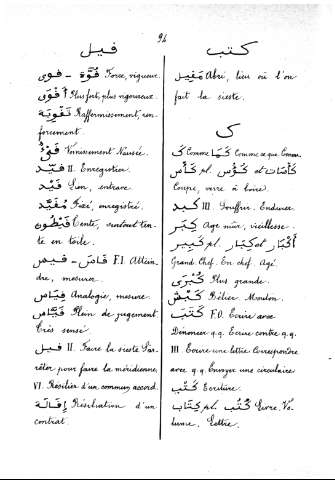 94
قيل
قُوَّة - قوى Force, vigueur.
أَقْوَى Plus fort, plus vigoureux.
تَقْوِيَة Raffermissement, ren-
forcement.
Vomissement Nausée.
قَيَّد II. Enregistrer.
قَيْد Lien, entrave.
مُقَيَّد Fixé, enregistré.
قَيْطُون Tente, surtout ten-
te en toile.
قَاسَ - قيس F.I. Attein-
dre, mesurer.
قِيَاس Analogie, mesure.
قَيَّاس Plein de jugement,
Très sensé
قيل II. Faire la sieste S'ar-
rêter pour faire la méridienne.
VI. Résilier d'un commun accord.
إِقَالَة Résiliation d'un
contrat
كتب
مَقِيل Abri, lieu où l'on
fait la sieste.
ك
كَ Comme كَمَا Comme ce que Comme.
كَأْس pl. كُؤُس et كَأْسَات
Coupe, verre à boire.
كبد III Souffrir. Endurer
كِبَر Age mûr, vieillesse.
كَبِير pl. كِبَار et أَكْبَار
Grand Chef. En chef. Agé
كُبْرَى Plus grande.
كَبْش Bélier. Mouton.
كَتَبَ F.O. Ecrire avec
Dénoncer q.q. Ecrire contre q.q.
III Ecrire une lettre Correspondre
avec q.q. Envoyer une circulaire
كَتْب Ecriture.
كِتَاب pl. كُتُب Livre. Vo-
lume. Lettre.